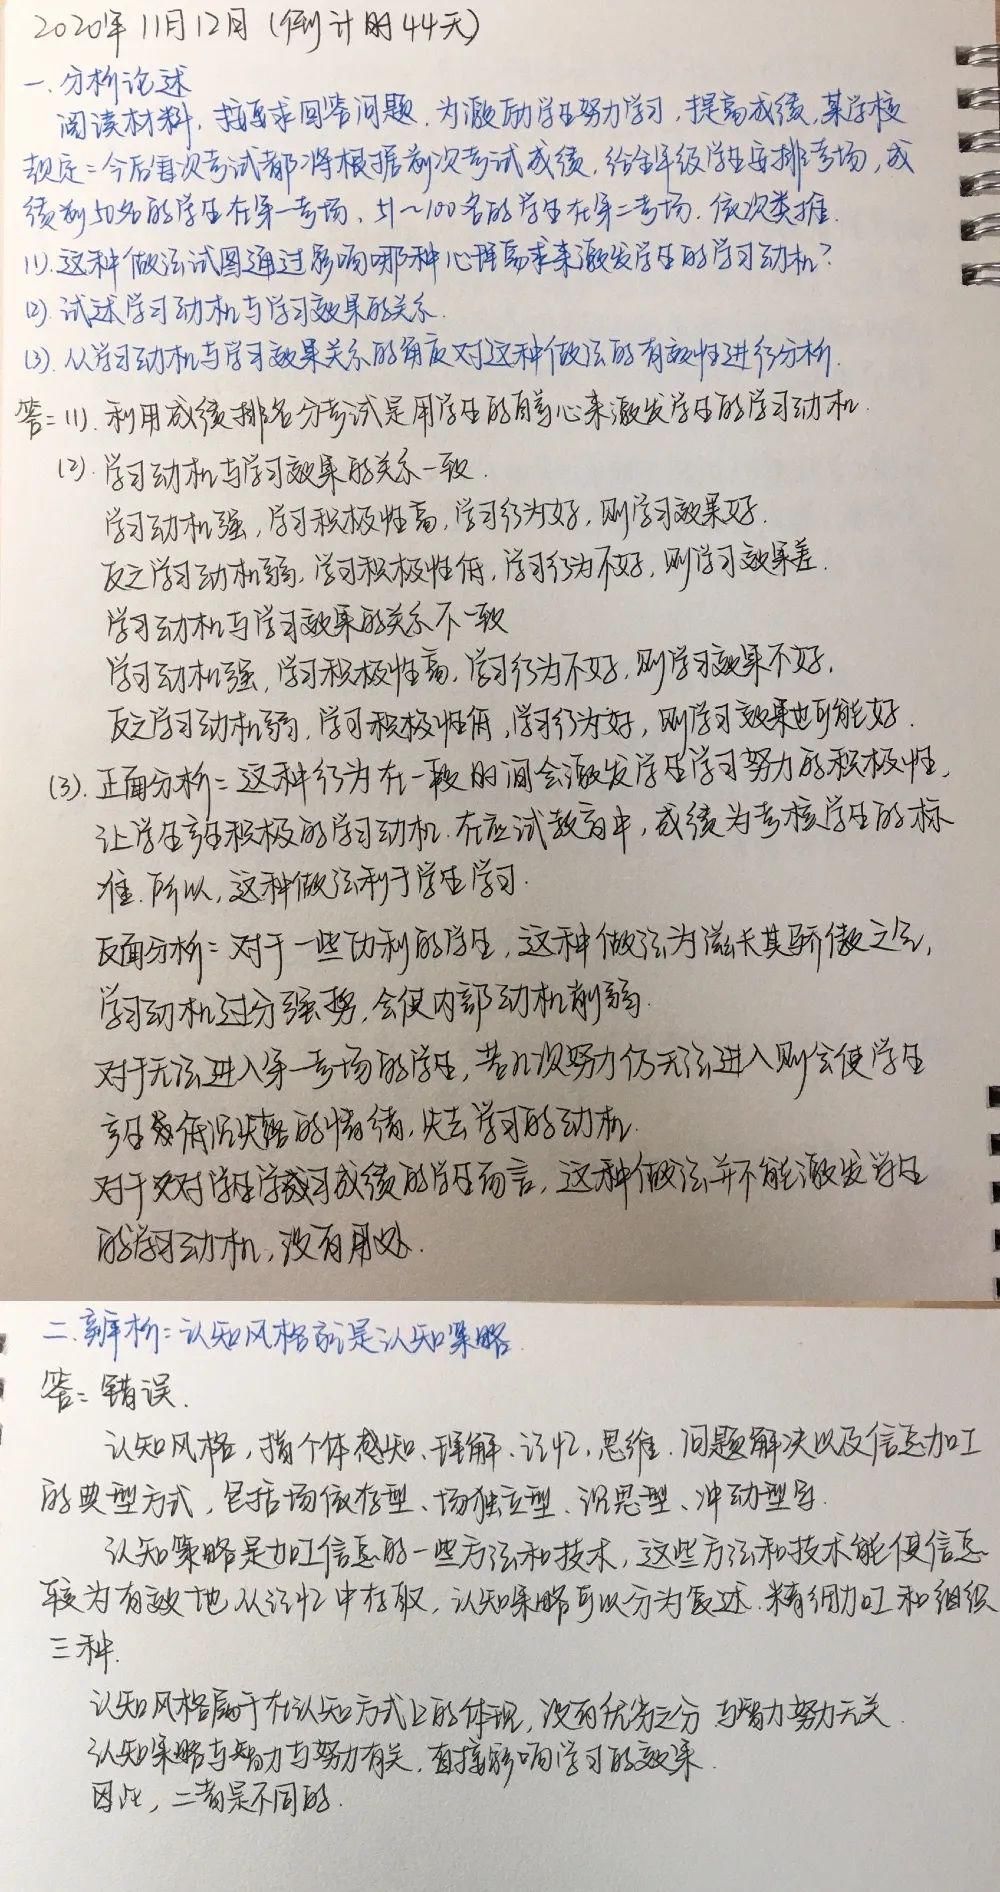 2020年11月12日(倒计时44天)
一.分析论述
阅读材料,按要求回答问题.为激励学生努力学习,提高成绩,某学校
规定:今后每次考试都将根据前次考试成绩,给全年级学生安排考场,成
绩前50名的学生在第一考场、51~100名的学生在第二考场.依次类推.
(1).这种做法试图通过影响哪种心理需求来激发学生的学习动机?
(2).试述学习动机与学习效果的关系.
(3).从学习动机与学习效果关系的角度对这种做法的有效性进行分析.
答:(1).利用成绩排名分考试是用学生的自尊心来激发学生的学习动机.
(2).学习动机与学习效果的关系一致.
学习动机强,学习积极性高,学习行为好,则学习效果好.
反之学习动机弱,学习积极性低,学习行为不好,则学习效果差.
学习动机与学习效果的关系不一致
学习动机强,学习积极性高,学习行为不好,则学习效果不好.
反之学习动机弱,学习积极性低,学习行为好,则学习效果也可能好.
(3).正面分析:这种行为在一段时间会激发学生学习努力的积极性,
让学生产生积极的学习动机.在应试教育中,成绩为考核学生的标
准.所以,这种做法利于学生学习.
反面分析:对于一些功利的学生,这种做法为滋长其骄傲之心,
学习动机过分强势,会使内部动机削弱.
对于无法进入第一考场的学生,若几次努力仍无法进入则会使学生
产生低沉失落的情绪,失去学习的动机.
对于对学习成绩的学生而言,这种做法并不能激发学生
的学习动机,没有用处.
二.辨析:认知风格就是认知策略.
答:错误.
认知风格,指个体感知、理解、记忆、思维、问题解决以及信息加工
的典型方式,包括场依存型、场独立型、沉思型、冲动型等.
认知策略是加工信息的一些方法和技术,这些方法和技术能使信息
较为有效地从记忆中存取.认知策略可以分为复述、精细加工和组织
三种.
认知风格属于在认知方式上的体现,没有优劣之分 与智力努力无关.
认知策略与智力与努力有关.直接影响学习的效果.
因此,二者是不同的.